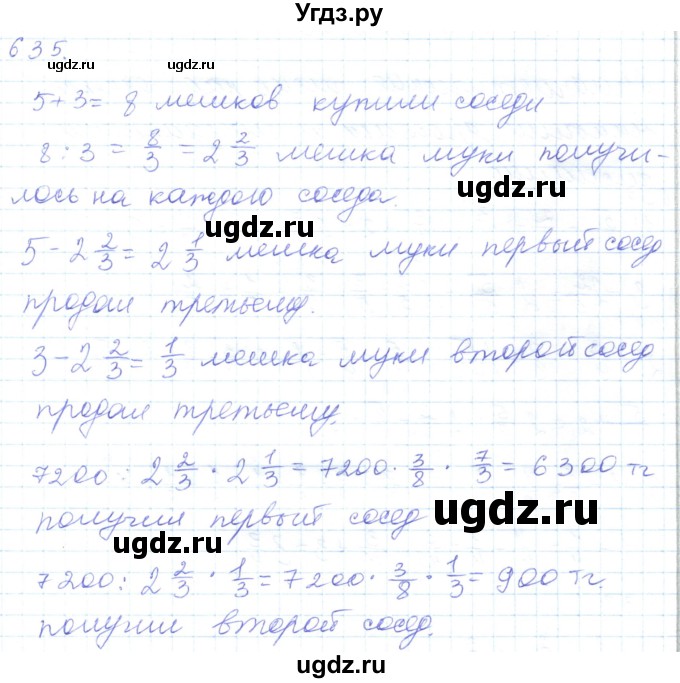 Угдз.ру
635.
ugdz.ru ugdz.ru
5+3= 8 мешков купили соседи
8:3 = 8/3 = 2 2/3 мешка муки получи-
ugdz.ru
лось на каждого соседа.
ugdz.ru
5 - 2 2/3 = 2 1/3 мешка муки первый сосед
ugdz.ru
продал третьему.
3 - 2 2/3 = 1/3 мешка муки второй сосед
ugdz.ru
продал третьему.
7200 : 2 2/3 · 2 1/3 = 7200 · 3/8 · 7/3 = 6300 тг
получил первый сосед
ugdz.ru
ugdz.ru
7200 : 2 2/3 · 1/3 = 7200 · 3/8 · 1/3 = 900 тг.
получил второй сосед.
ugdz.ru
ugdz.ru